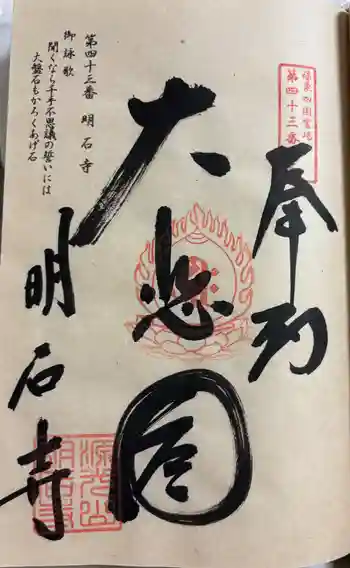 奉納
第四十三番
大悲閣
明石寺
第四十三番 明石寺
御詠歌
聞くならく千手不思議の誓いには
大盤石もかろくあげ石